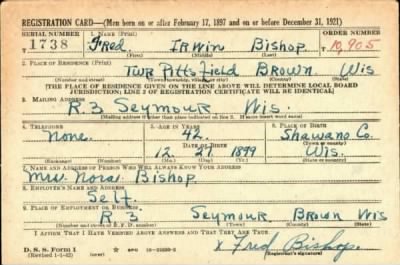 REGISTRATION CARD—(Men born on or after February 17, 1897 and on or before December 31, 1921)
SERIAL NUMBER 1. NAME (Print) ORDER NUMBER
1738 Fred Irwin Bishop 10,905
(First) (Middle) (Last)
2. PLACE OF RESIDENCE (Print)
Twp Pittsfield Brown Wis
(Number and street) (Town, township, village, or city) (County) (State)
[THE PLACE OF RESIDENCE GIVEN ON THE LINE ABOVE WILL DETERMINE LOCAL BOARD
JURISDICTION; LINE 2 OF REGISTRATION CERTIFICATE WILL BE IDENTICAL]
3. MAILING ADDRESS
R.3 Seymour Wis.
[Mailing address if other than place indicated on line 2. If same insert word same]
4. TELEPHONE 5. AGE IN YEARS 6. PLACE OF BIRTH
None. 42. Shawano Co.
DATE OF BIRTH (Town or county)
12 21 1899 Wis.
(Exchange) (Number) (Mo.) (Day) (Yr.) (State or country)
7. NAME AND ADDRESS OF PERSON WHO WILL ALWAYS KNOW YOUR ADDRESS
Mrs. Nora Bishop
8. EMPLOYER'S NAME AND ADDRESS
Self.
9. PLACE OF EMPLOYMENT OR BUSINESS
R 3 Seymour Brown Wis
(Number and street or R. F. D. number) (Town) (County) (State)
I AFFIRM THAT I HAVE VERIFIED ABOVE ANSWERS AND THAT THEY ARE TRUE.
D. S. S. Form 1
(Revised 1-1-42) GPO
x Fred Bishop.
(Registrant's signature)